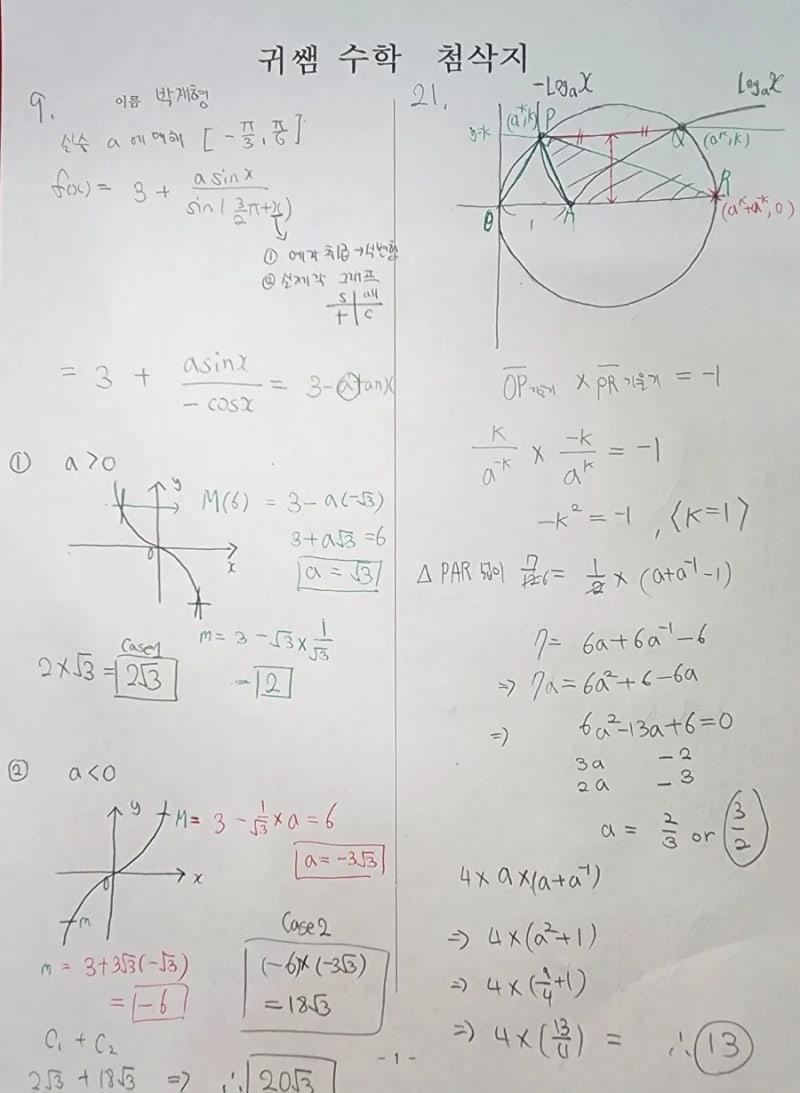 귀쌤 수학 첨삭지
9.
이름 박제형
실수 a에 대해 [-π/3, π/6]
f(x) = 3 + asinx / sin(3/2π+x)
① 예각 취급 →
② 실제각 그래프
S | all
T | C
= 3 + asinx / -cosx = 3-atanx
① a>0
y
0
x
M(6) = 3-a(-√3)
3+a√3=6
a=√3
m= 3-√3×1/√3
=2
Case1
2×√3=2√3
② a<0
y
0
x
M= 3-1/√3×a=6
a=-3√3
m
m = 3+3√3(-√3)
=-6
Case2
(-6)×(-3√3)
=18√3
C₁+C₂
2√3+18√3 ⇒ ∴20√3
21.
-Logₐx
Logₐx
y=k
(a⁻ᵏ,k) P
Q (aᵏ,k)
O
1
A
R
(aᵏ+a⁻ᵏ,0)
OP기울기 × PR기울기 = -1
k/a⁻ᵏ × -k/aᵏ = -1
-k²=-1, <k=1>
△PAR 넓이 7/12 6 = 1/2 × (a+a⁻¹-1)
7= 6a+6a⁻¹-6
⇒ 7a=6a²+6-6a
⇒ 6a²-13a+6=0
3a -2
2a -3
a = 2/3 or 3/2
4×a×(a+a⁻¹)
⇒ 4×(a²+1)
⇒ 4×(9/4+1)
⇒ 4×(13/4) = ∴13
- 1 -